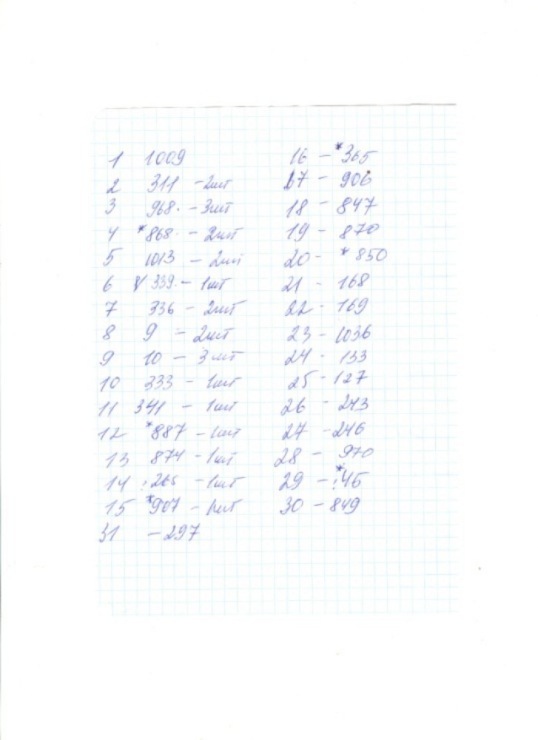 1 1009
2 311 - 2шт
3 968 - 3шт
4 *868 - 2шт
5 1013 - 2шт
6 339 - 1шт
7 336 - 2шт
8 9 - 2шт
9 10 - 3шт
10 333 - 1шт
11 341 - 1шт
12 *887 - 1шт
13 874 - 1шт
14 265 - 1шт
15 *907 - 1шт
31 - 297
16 - *365
17 - 906
18 - 847
19 - 870
20 - *850
21 - 168
22 - 169
23 - 1036
24 - 133
25 - 127
26 - 243
27 - 246
28 - 970
29 - *45
30 - 849